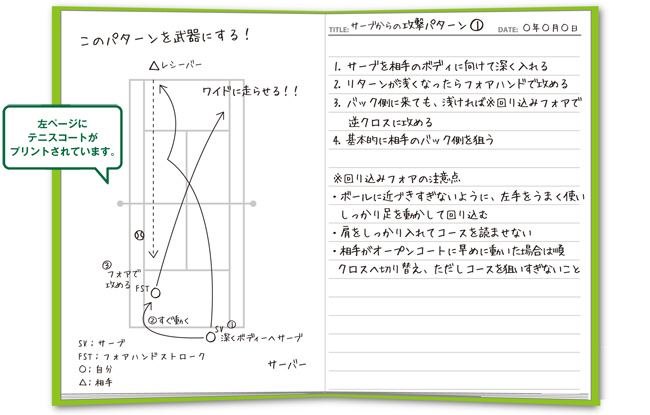 このパターンを武器にする！
△レシーバー
ワイドに走らせる！！
左ページに
テニスコートが
プリントされています。
③
フォアで
攻める
FST
②すぐ動く
SV ①
深くボディーへサーブ
サーバー
SV：サーブ
FST：フォアハンドストローク
○：自分
△：相手
TITLE: サーブからの攻撃パターン① DATE: ○年○月○日
1. サーブを相手のボディに向けて深く入れる
2. リターンが浅くなったらフォアハンドで攻める
3. バック側に来ても、浅ければ※回り込みフォアで
逆クロスに攻める
4. 基本的に相手のバック側を狙う
※回り込みフォアの注意点
・ボールに近づきすぎないように、左手をうまく使い
しっかり足を動かして回り込む
・肩をしっかり入れてコースを読ませない
・相手がオープンコートに早めに動いた場合は順
クロスへ切り替え、ただしコースを狙いすぎないこと